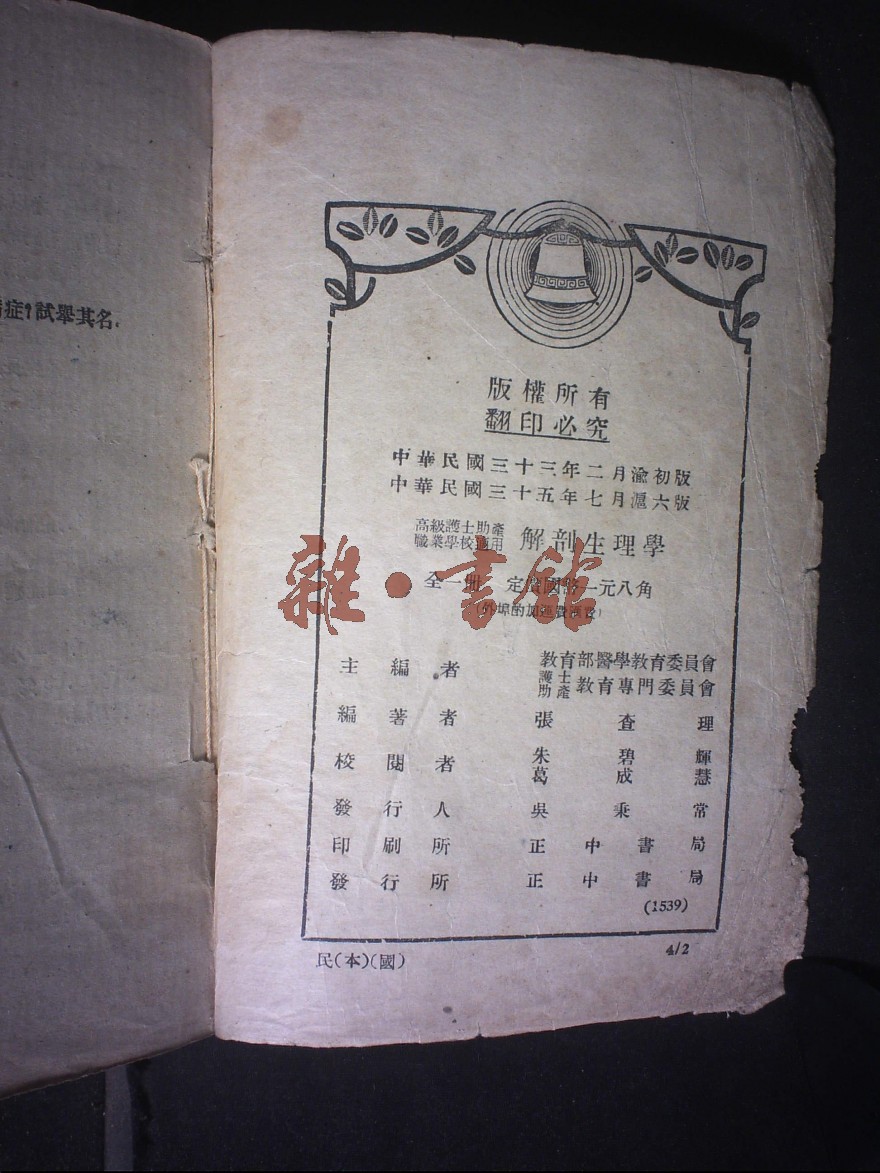 症？試舉其名.
版權所有
翻印必究
中華民國三十三年二月渝初版
中華民國三十五年七月滬六版
高級護士助產
職業學校適用
解剖生理學
全一冊 定價國幣一元八角
(外埠酌加運費滙費)
主編者 教育部醫學教育委員會
護士
助產 教育專門委員會
編著者 張查理
校閱者 朱碧輝
葛成慧
發行人 吳秉常
印刷所 正中書局
發行所 正中書局
(1539)
民(本)(國) 4/2
雜·書館